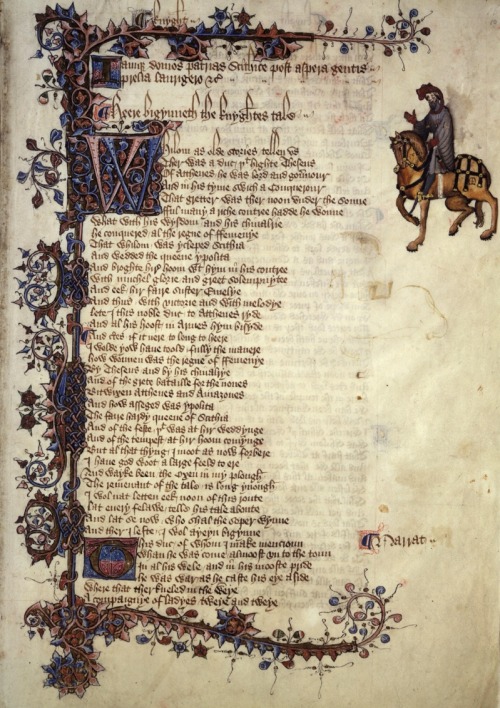 Knyght
Iamque domos patrias Scithice post aspera gentis
prelia laurigero &c
Heere bigynneth the knyghtes tale
Whilom as olde stories tellen vs
Ther was a duc þt highte Theseus
Of Atthenes he was lord and gouernour
And in his tyme swich a Conquerour
That gretter was ther noon vnder the sonne
fful many a riche contree hadde he wonne
What with his wysdom and his chiualrie
he conquered al the regne of ffemenye
That whilom was ycleped Scithia
And wedded the queene ypolita
And broghte hir hoom wt hym in his contree
With muchel glorie and greet solempnytee
And eek hir faire suster Emelye
And thus with victorie and with melodye
lete I this noble duc to Atthenes ryde
And al his hoost in Armes hym bisyde
And certes if it nere to long to heere
I wolde yow haue toold fully the manere
how wonnen was the regne of ffemenye
By Theseus and by his chiualrye
And of the grete bataille for the nones
Bitwixen Atthenes and Amazones
And how asseged was ypolita
The faire hardy queene of Scithia
And of the feste þt was at hir weddynge
And of the tempest at hir hoom comynge
But al that thyng I moot as now forbere
I haue god woot a large feeld to ere
And wayke been the oxen in my plough
The remenant of the tale is long ynough
I wol nat letten eek noon of this route
lat euery felawe telle his tale aboute
And lat se now who shal the soper wynne
And ther I lefte I wol ayeyn bigynne
Narrat
This duc of whom I make mencioun
Whan he was come almoost vn to the toun
In al his wele and in his mooste pride
he was war as he caste his eye aside
Where that ther kneled in the weye
A compaignye of ladyes tweye and tweye